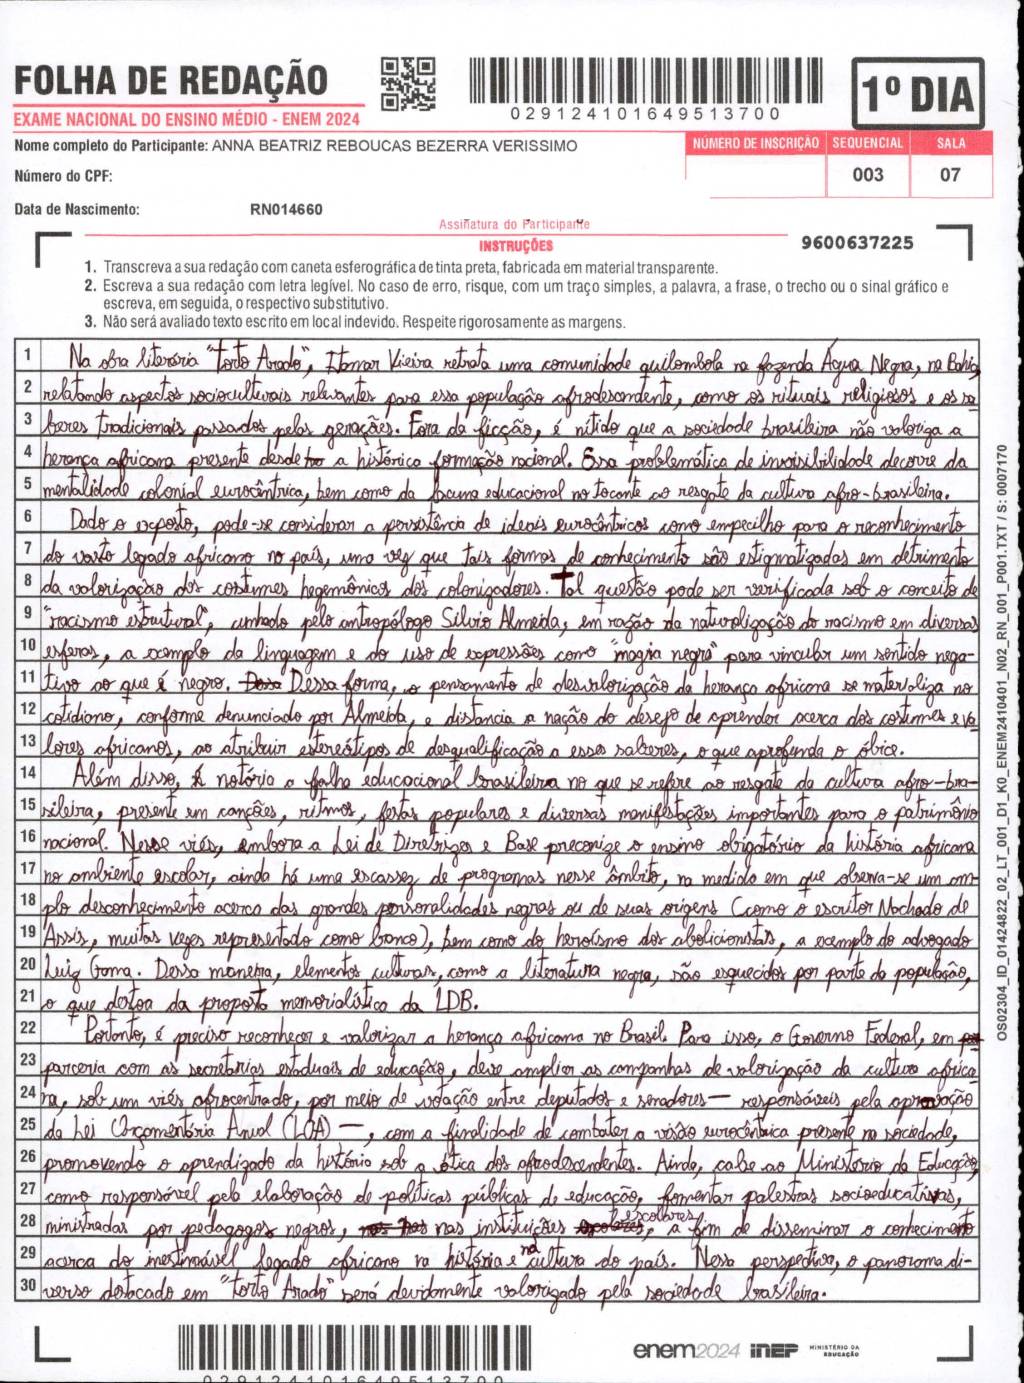 FOLHA DE REDAÇÃO
EXAME NACIONAL DO ENSINO MÉDIO - ENEM 2024
029124101649513700
1º DIA
Nome completo do Participante: ANNA BEATRIZ REBOUCAS BEZERRA VERISSIMO
NÚMERO DE INSCRIÇÃO SEQUENCIAL SALA
Número do CPF:
003 07
Data de Nascimento: RN014660
Assinatura do Participante
INSTRUÇÕES
9600637225
1. Transcreva a sua redação com caneta esferográfica de tinta preta, fabricada em material transparente.
2. Escreva a sua redação com letra legível. No caso de erro, risque, com um traço simples, a palavra, a frase, o trecho ou o sinal gráfico e
escreva, em seguida, o respectivo substitutivo.
3. Não será avaliado texto escrito em local indevido. Respeite rigorosamente as margens.
1 Na obra literária "Torto Arado", Itamar Vieira retrata uma comunidade quilombola na fazenda Água Negra, na Bahia,
2 relatando aspectos socioculturais relevantes para essa população afrodescendente, como os rituais religiosos e os sa
3 beres tradicionais passados pelas gerações. Fora da ficção, é nítido que a sociedade brasileira não valoriza a
4 herança africana presente desde a histórica formação nacional. Essa problemática de invisibilidade decorre da
5 mentalidade colonial eurocêntrica, bem como da lacuna educacional no tocante ao resgate da cultura afro-brasileira.
6 Dado o exposto, pode-se considerar a persistência de ideais eurocêntricos como empecilho para o reconhecimento
7 do vasto legado africano no país, uma vez que tais formas de conhecimento são estigmatizadas em detrimento
8 da valorização dos costumes hegemônicos dos colonizadores. Tal questão pode ser verificada sob o conceito de
9 "racismo estrutural", cunhado pelo antropólogo Silvio Almeida, em razão da naturalização do racismo em diversas
10 esferas, a exemplo da linguagem e do uso de expressões como "magia negra" para vincular um sentido nega-
11 tivo ao que é negro. Dessa Dessa forma, o pensamento de desvalorização da herança africana se materializa no
12 cotidiano, conforme denunciado por Almeida, e distancia a nação do desejo de aprender acerca dos costumes e va
13 lores africanos, ao atribuir estereótipos de desqualificação a esses saberes, o que aprofunda o óbice.
14 Além disso, é notória a falha educacional brasileira no que se refere ao resgate da cultura afro-bra-
15 sileira, presente em canções, ritmos, festas populares e diversas manifestações importantes para o patrimônio
16 nacional. Nesse viés, embora a Lei de Diretrizes e Base preconize o ensino obrigatório da história africana
17 no ambiente escolar, ainda há uma escassez de programas nesse âmbito, na medida em que observa-se um am-
18 plo desconhecimento acerca das grandes personalidades negras ou de suas origens (como o escritor Machado de
19 Assis, muitas vezes representado como branco), bem como do heroísmo dos abolicionistas, a exemplo do advogado
20 Luiz Gama. Dessa maneira, elementos culturais, como a literatura negra, são esquecidos por parte da população,
21 o que destoa da proposta memorialística da LDB.
22 Portanto, é preciso reconhecer e valorizar a herança africana no Brasil. Para isso, o Governo Federal, em par
23 parceria com as secretarias estaduais de educação, deve ampliar as campanhas de valorização da cultura africa-
24 na, sob um viés afrocentrado, por meio de votação entre deputados e senadores — responsáveis pela aprovação
25 da Lei Orçamentária Anual (LOA) —, com a finalidade de combater a visão eurocêntrica presente na sociedade,
26 promovendo o aprendizado da história sob a ótica dos afrodescendentes. Ainda, cabe ao Ministério da Educação,
27 como responsável pela elaboração de políticas públicas de educação, fomentar palestras socioeducativas,
28 ministradas por pedagogos negros, nas nas nas instituições escolares escolares, a fim de disseminar o conhecimento
29 acerca do inestimável legado africano na história e na cultura do país. Nessa perspectiva, o panorama di-
30 verso destacado em "Torto Arado" será devidamente valorizado pela sociedade brasileira.
OS02304_ID_01424822_02_LT_001_D1_K0_ENEM2410401_N02_RN_001_P001.TXT / S: 0007170
029124101649513700
enem2024 inep MINISTÉRIO DA EDUCAÇÃO